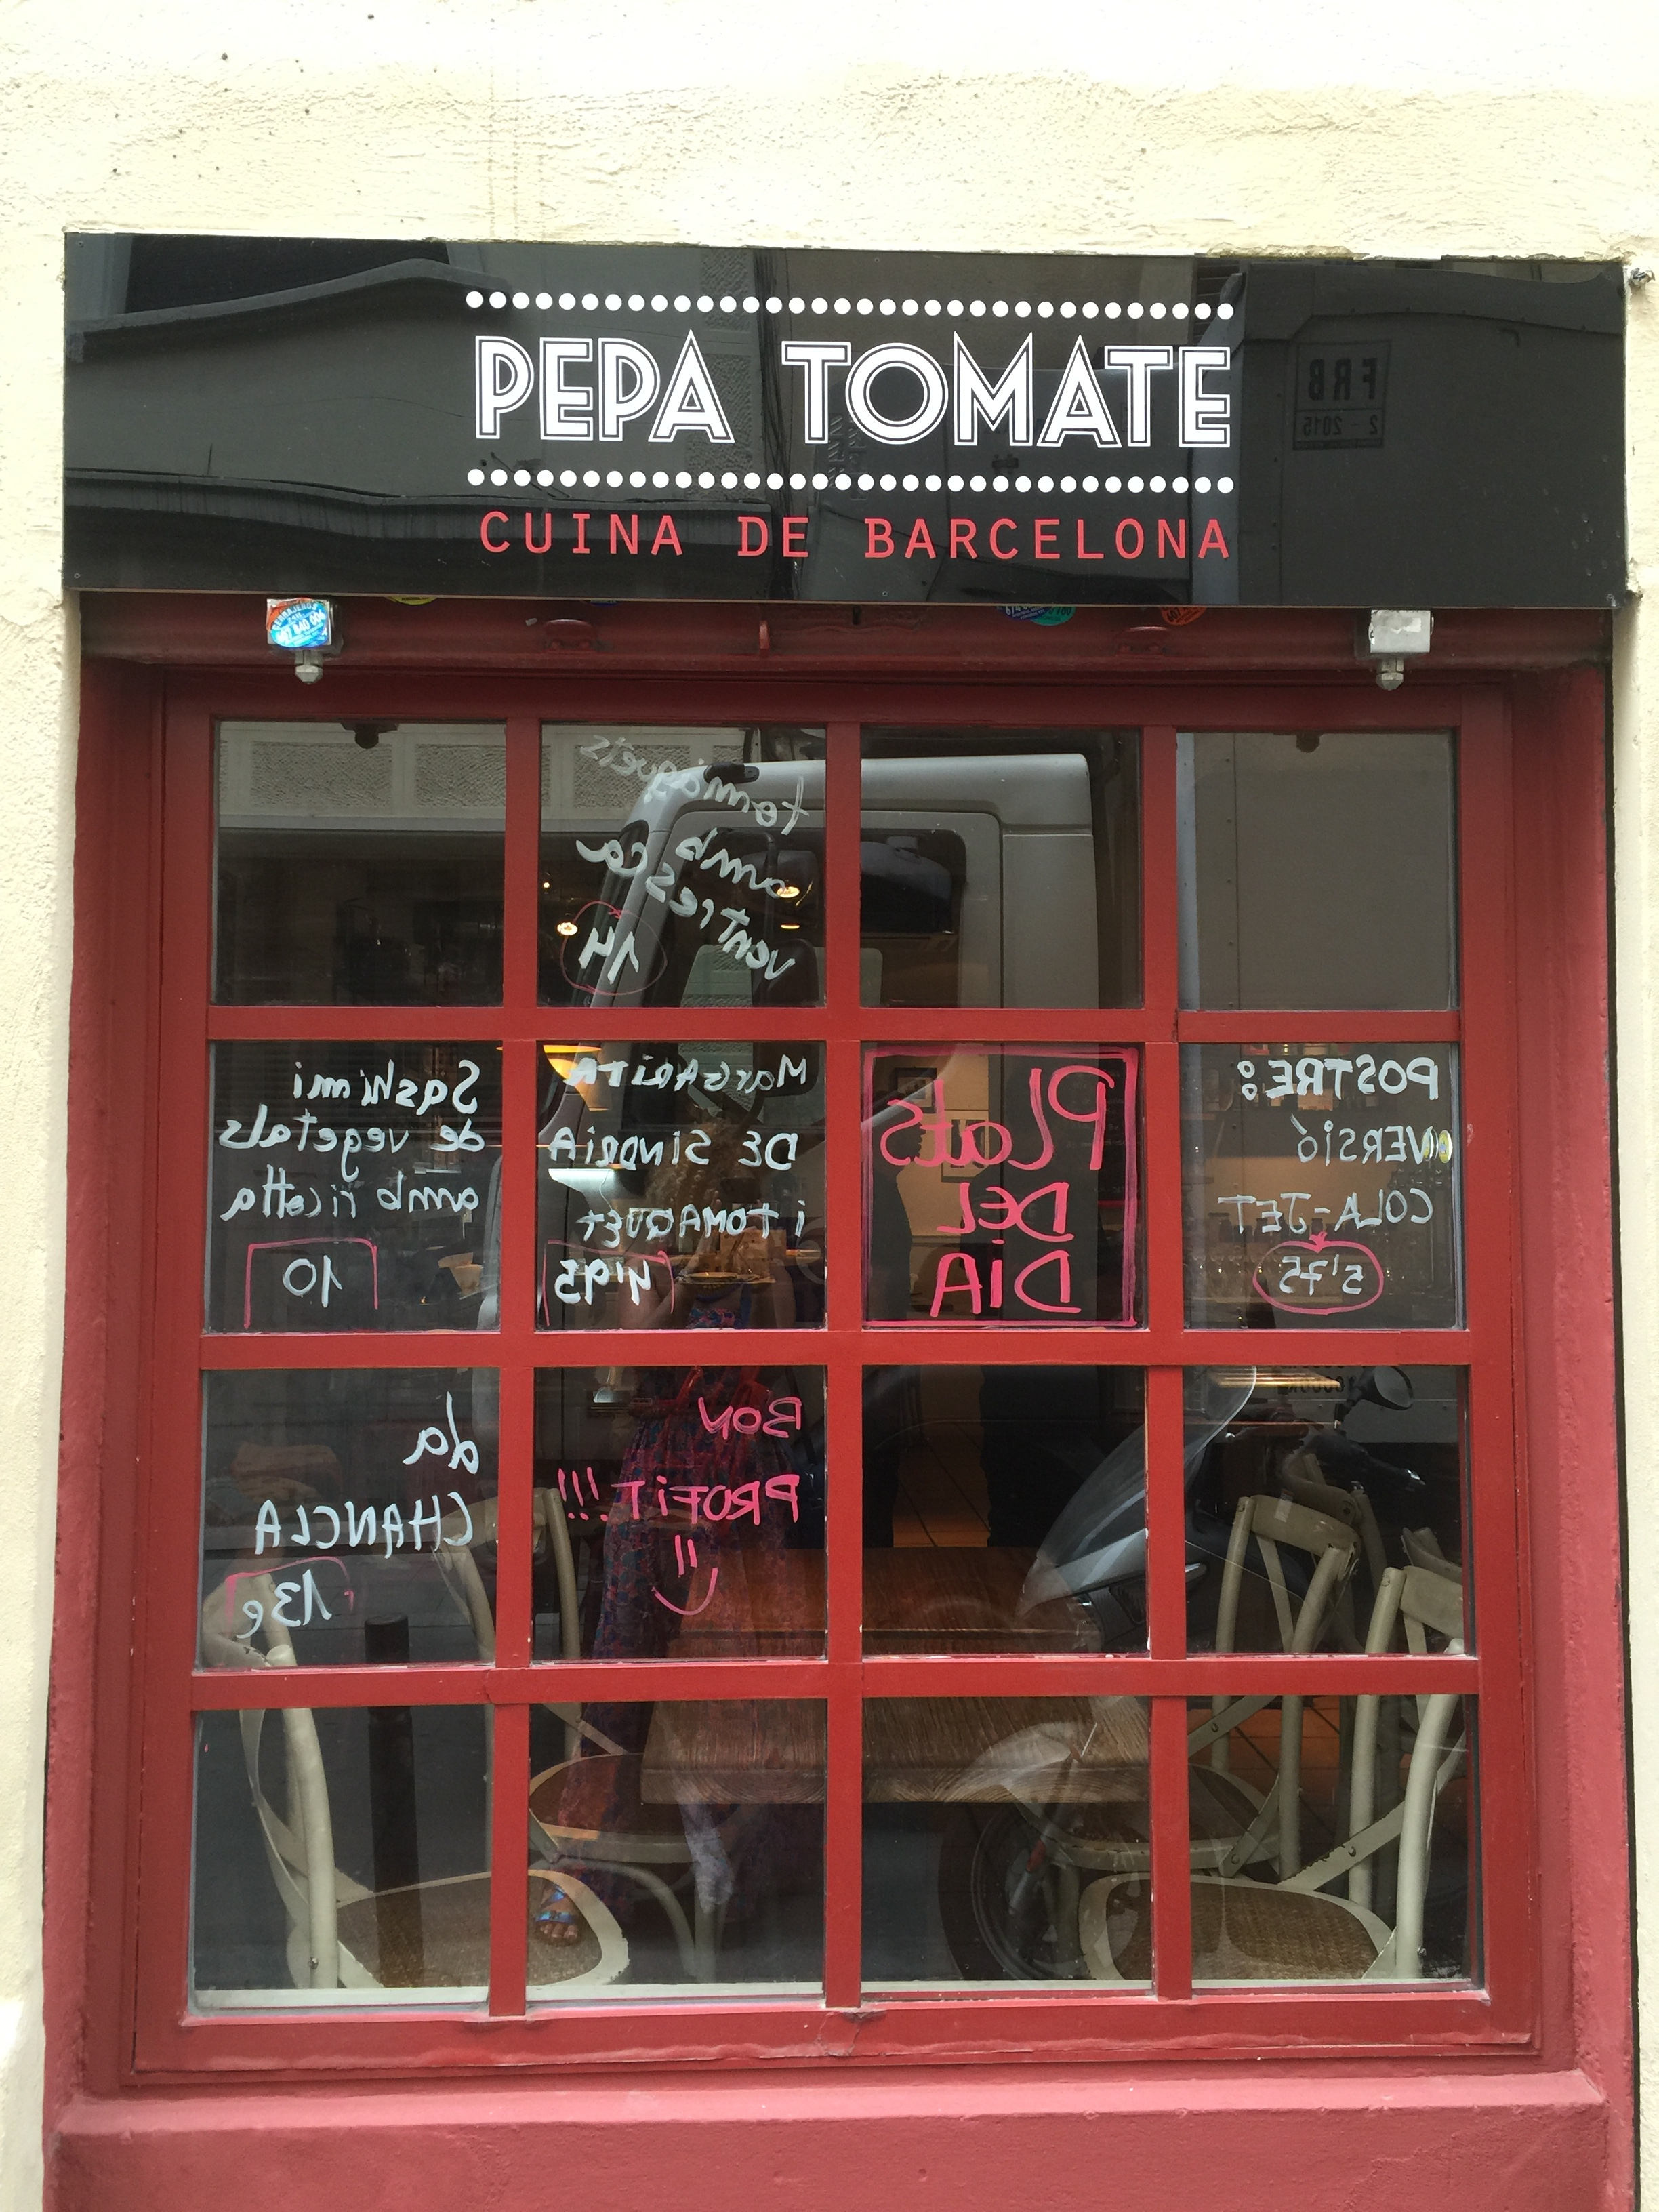 PEPA TOMATE
CUINA DE BARCELONA
FRB
2 - 2015
amb
VENTRESCA
14
Sashimi
de vegetals
amb ricotta
10
MARGARITA
DE SINDRIA
i TOMAQUET
4'95
PLats
DEL
DiA
POSTRE:
VERSIÓ
COLA-JET
5'75
da
CHANCLA
13e
BON
PROFIT!!!